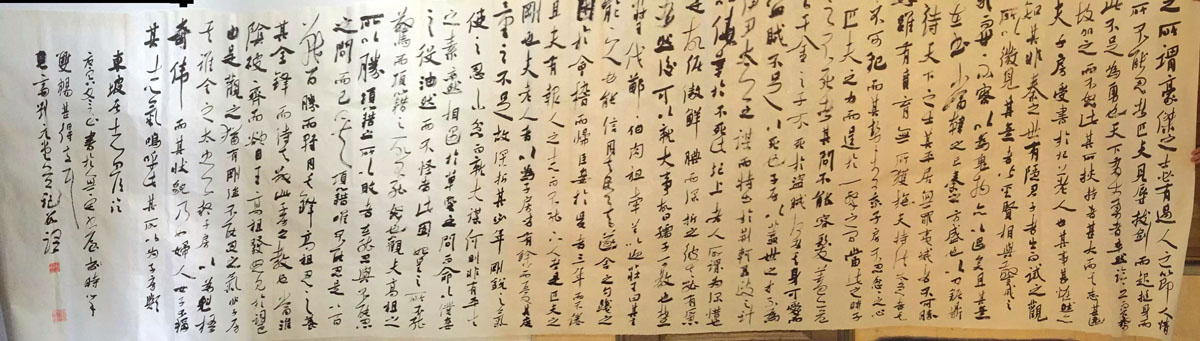 之所謂豪傑之士必有過人之節人情
所不能忍者匹夫見辱拔劍而起挺身而
此不足為勇也天下有大勇者卒然臨之而不驚
故加之而不怒此其所挾持者甚大而其志甚遠
夫子房受書於圯上老人也其事甚怪然
知其非秦之世有隱君子者出而試之觀
所以微見其意者皆聖賢相與警戒之
而世不察以為鬼物亦已過矣且其意
不在書當韓之亡秦之方盛也以刀鋸鼎
待天下之士其平居無罪夷滅者不可勝
數雖有賁育無所獲施夫持法太急者
不可犯而其勢未可乘子房不忍忿忿之心
匹夫之力而逞於一擊之間當此之時子
之不死者其間不能容髮蓋亦危
千金之子不死於盜賊何者其身可愛
盜賊不足以死也子房以蓋世之才不為
伊尹太公之謀而特出於荊軻聶政之計
以僥倖於不死此圯上老人所謂為深惜也
是故倨傲鮮腆而深折之彼其能有所忍
也然後可以就大事故曰孺子可教也楚
莊王伐鄭鄭伯肉袒牽羊以迎莊王曰其君
能下人必能信用其民矣遂舍之勾踐之
困於會稽而歸臣妾於吳者三年而不倦
且夫有報人之志而不能下人者是匹夫之
剛也夫老人者以為子房才有餘而憂其度
量之不足故深折其少年剛銳之氣
使之忍小忿而就大謀何則非有平生
之素卒然相遇於草野之間而命以僕妾
之役油然而不怪者此固秦皇之所不能
驚而項籍之所不能怒也觀夫高祖之
所以勝項籍之所以敗者在能忍與不能忍
之間而已矣項籍唯不能忍是以百
戰百勝而輕用其鋒高祖忍之養
其全鋒而待其斃此子房教之也當淮
陰破齊而欲自王高祖發怒見於詞色
由是觀之猶有剛強不忍之氣非子房
其誰全之太史公疑子房以為魁梧
奇偉而其狀貌乃如婦人女子不稱
其志氣嗚呼此其所以為子房歟
東坡居士留侯論
庚寅
雙暢